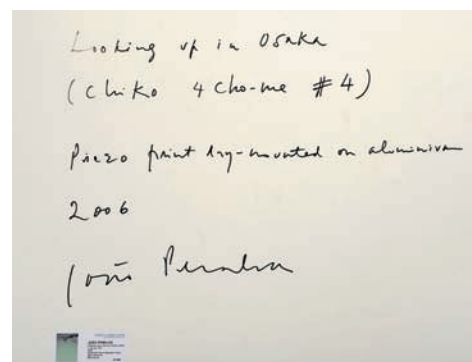 Looking up in Osaka
(Chiko 4 Cho-me #4)
Piezo print dry-mounted on aluminium
2006
João Penalva